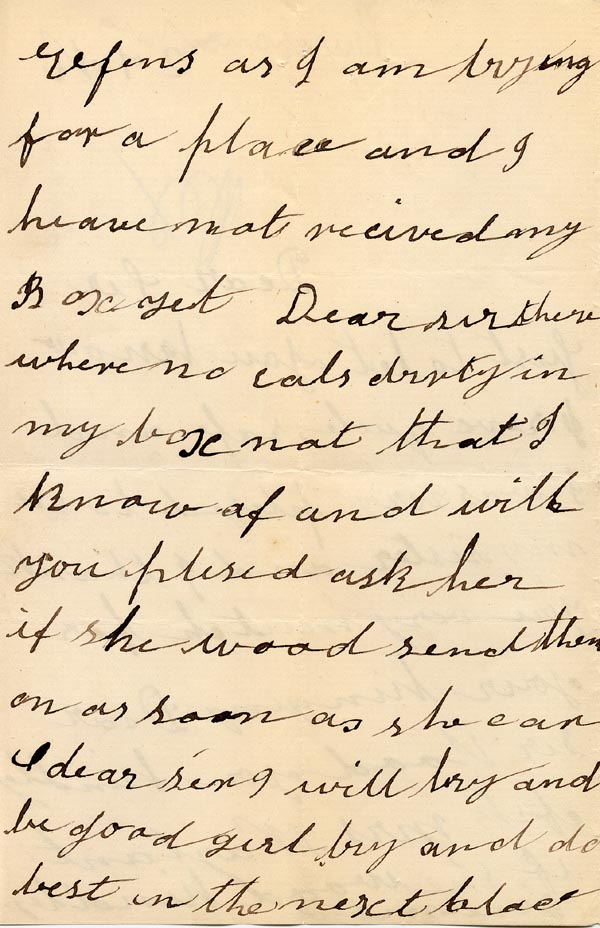 refens as I am trying
for a place and I
heave not recived my
Box yet Dear sir there
where no eals drrty in
my box not that I
know of and will
you plesed ask her
if she wood send them
on as soon as she can
dear sir I will try and
be good gerl try and do
best in the next place